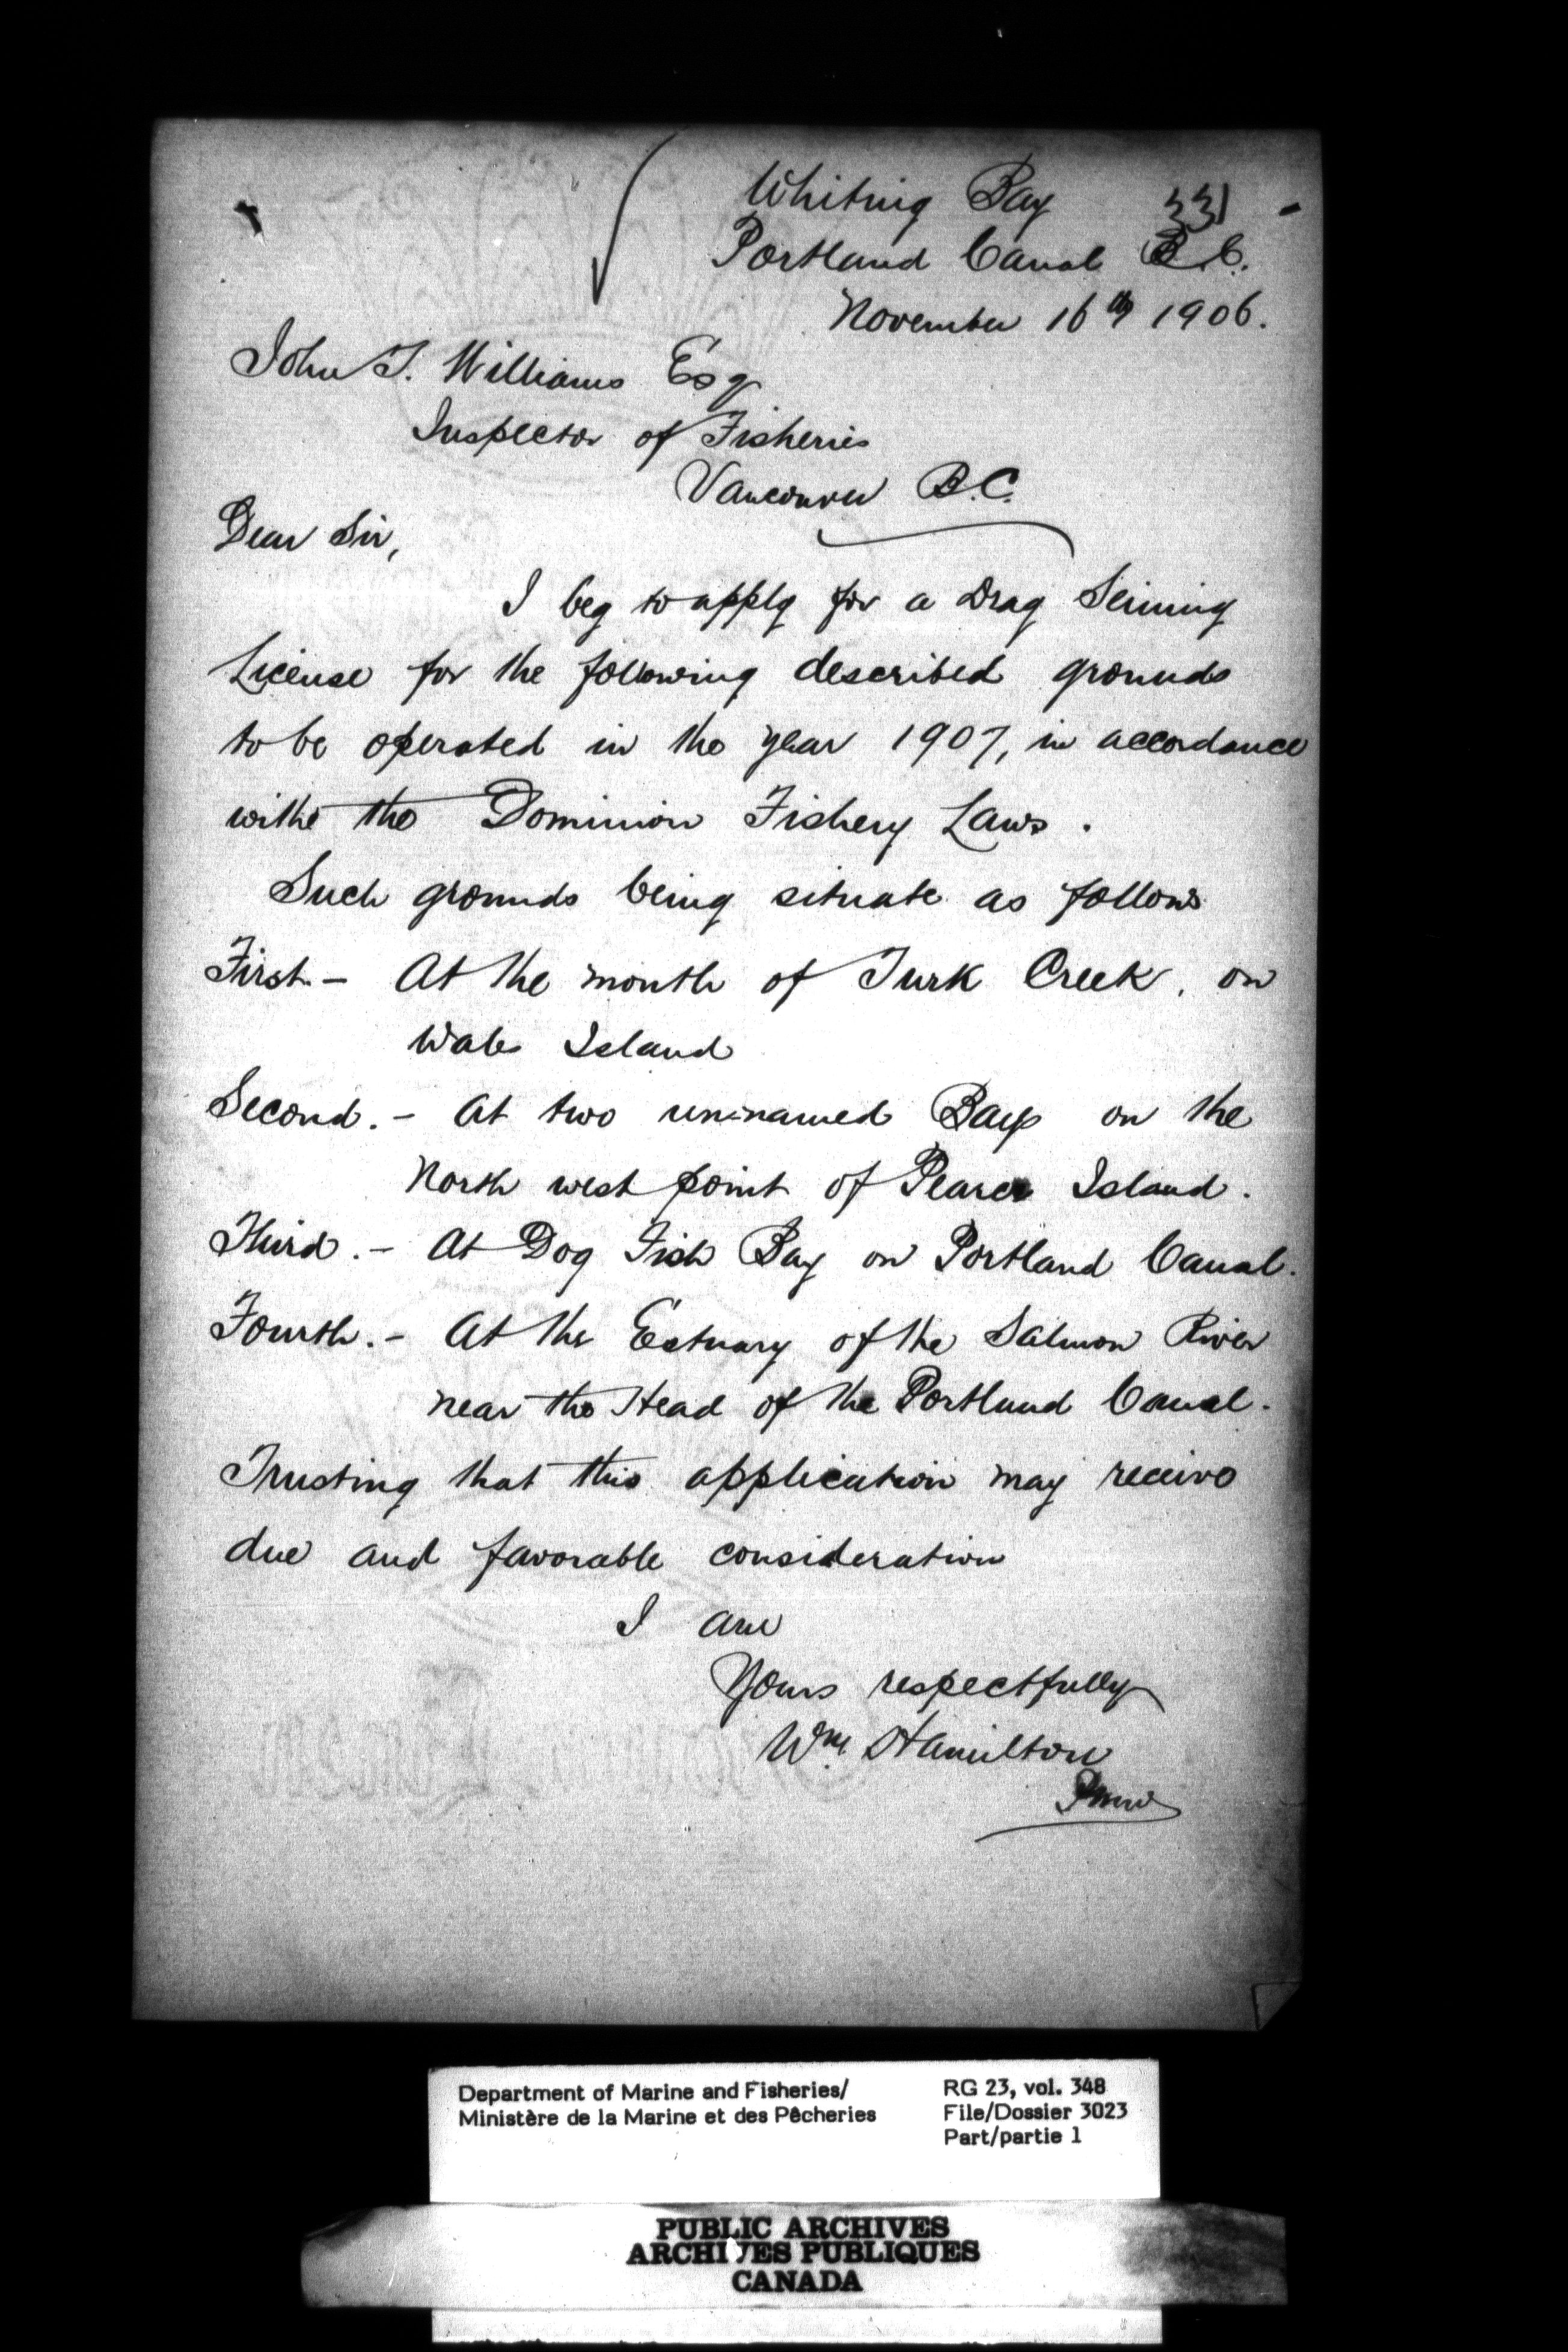 Whiting Bay
331
Portland Canal B.C.
November 16th 1906.
John T. Williams Esq
Inspector of Fisheries
Vancouver B.C.
Dear Sir,
I beg to apply for a Drag Seining
License for the following described grounds
to be operated in the year 1907, in accordance
withe the Dominion Fishery Laws.
Such grounds being situate as follows
First - At the mouth of Turk Creek, on
Wales Island
Second. - At two un-named Bays on the
North west point of Pearce Island.
Third. - At Dog Fish Bay on Portland Canal.
Fourth. - At the Estuary of the Salmon River
near the Head of the Portland Canal.
Trusting that this application may receive
due and favorable consideration
I am
Yours respectfully
Wm Hamilton
Department of Marine and Fisheries/
Ministère de la Marine et des Pêcheries
RG 23, vol. 348
File/Dossier 3023
Part/partie 1
PUBLIC ARCHIVES
ARCHIVES PUBLIQUES
CANADA